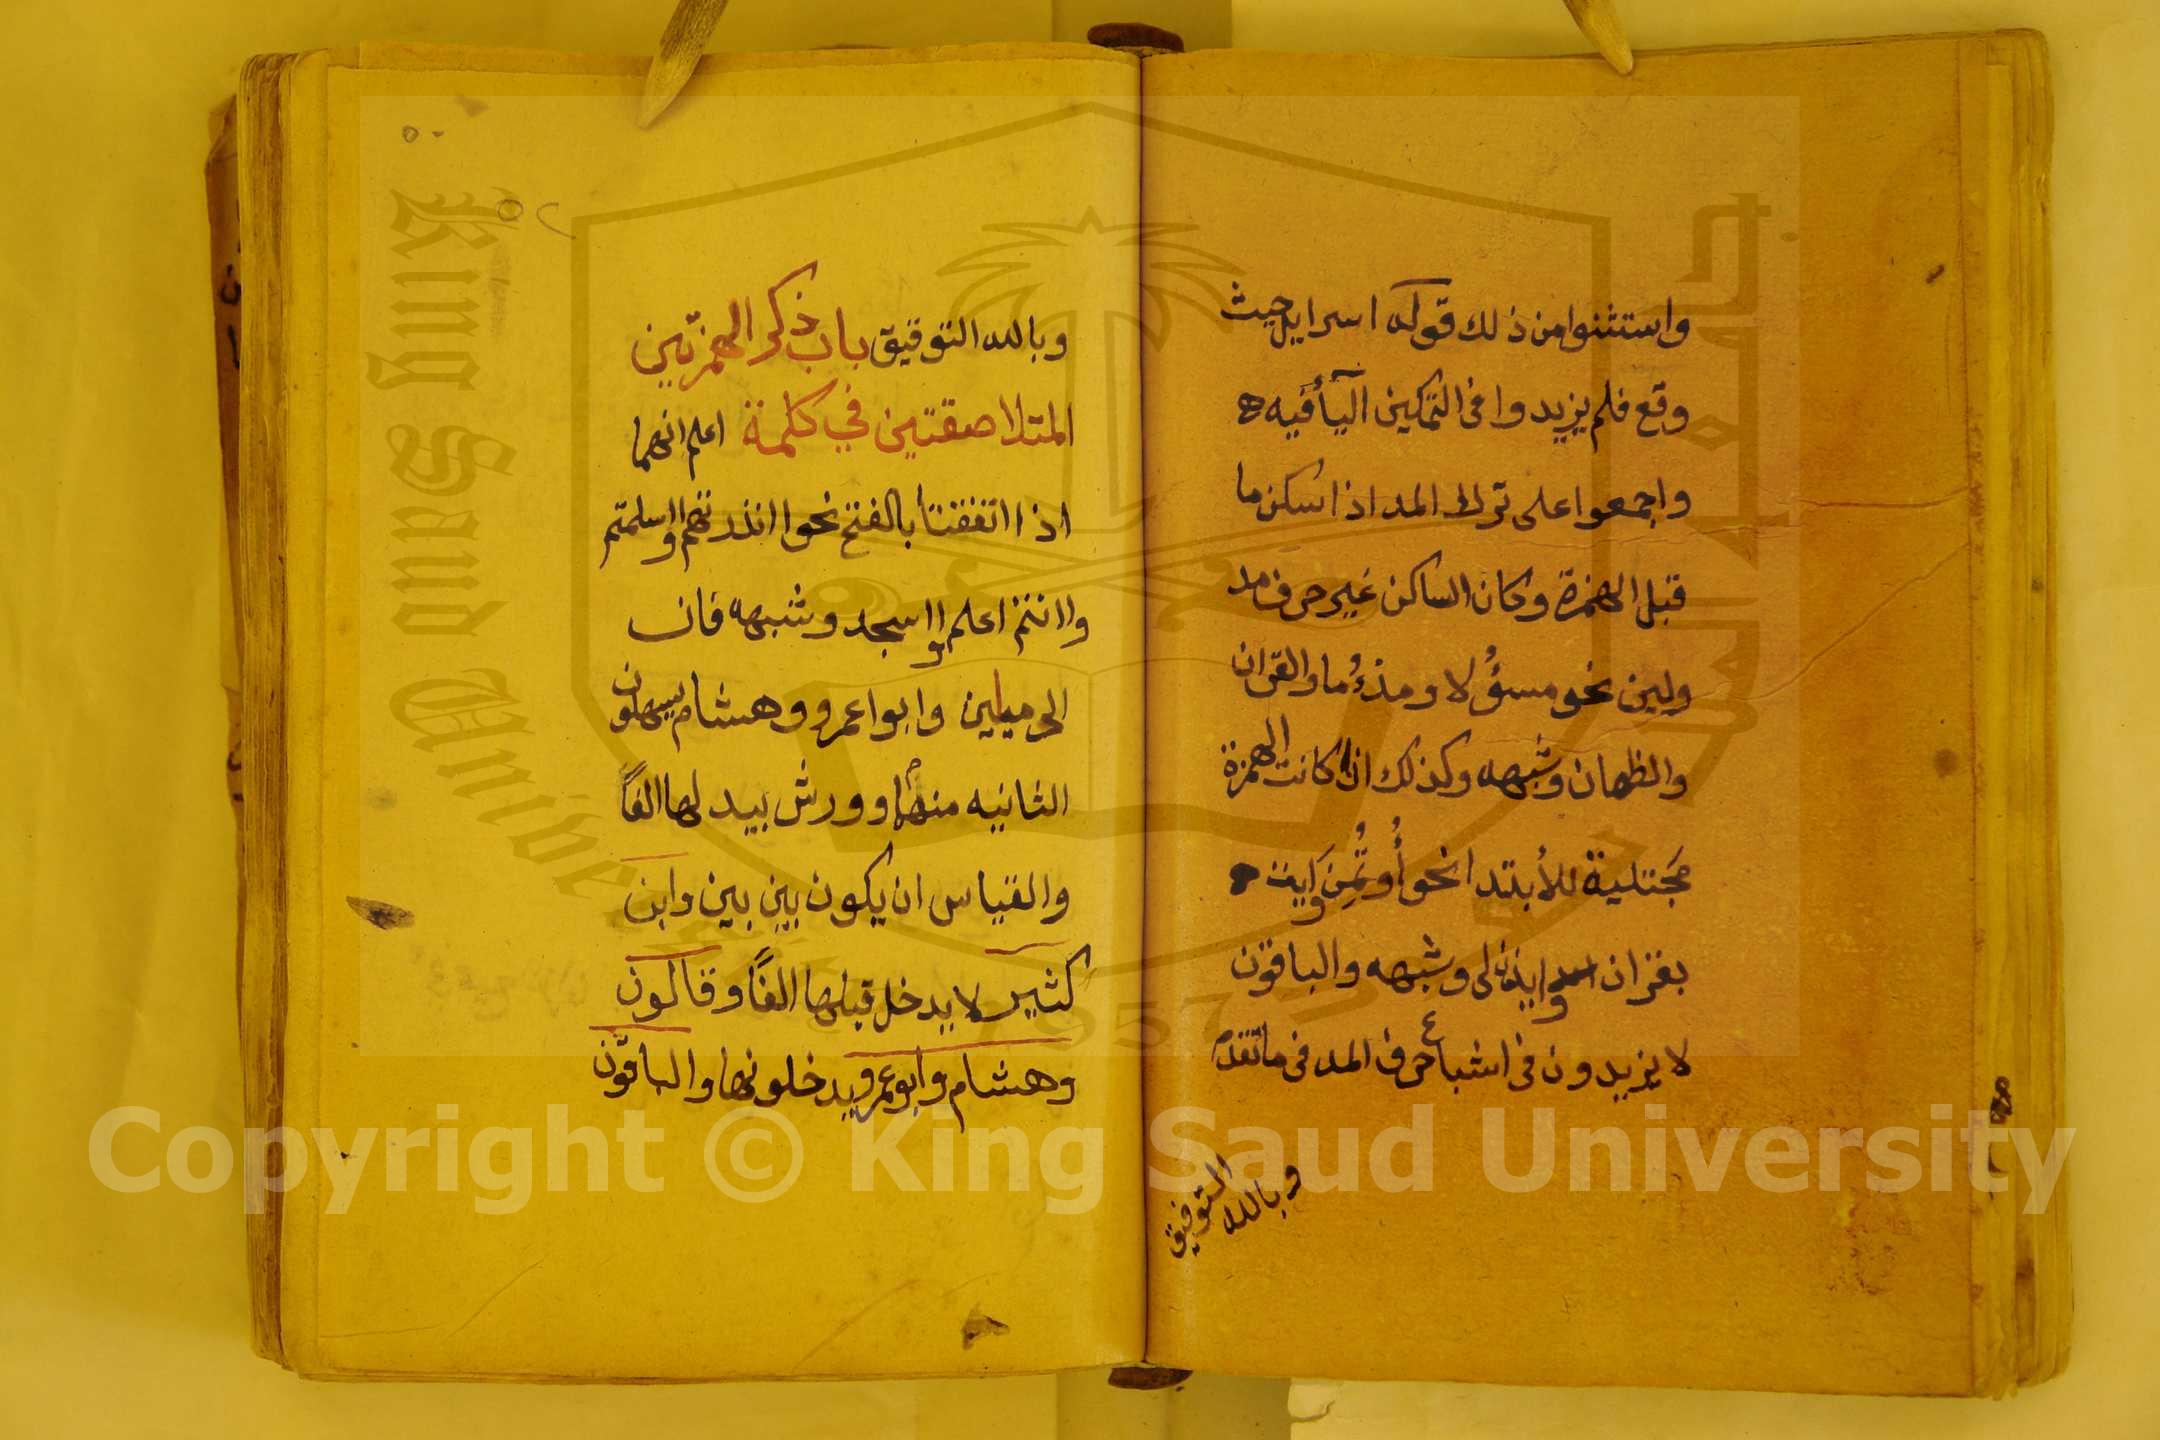 واستثنوا من ذلك قوله اسرايل حيث
وقع فلم يزيدوا في التمكين اليأ فيه
واجمعوا على ترك المد اذا سكن ما
قبل الهمزة وكان الساكن غير حرف مد
ولين نحو مسؤلا ومذءما والقران
والظمان وشبهه وكذلك ان كانت الهمزة
مجتلبة للأبتدا نحو أوتمن وايت
بقران وايذن لى وشبهه والباقون
لا يزيدون فى اشباع حرف المد فى ما تقدم
وبالله التوفيق
وبالله التوفيق باب ذكر الهمزتين
المتلاصقتين في كلمة اعلم انهما
اذا اتفقتا بالفتح نحو اانذرتهم واسلمتم
واانتم اعلم وااسجد وشبهه فان
الحرميين وابوا عمرو وهشام يسهلون
الثانيه منهما وورش يبدلها الفاً
والقياس ان يكون بين بين وابن
كثير لا يدخل قبلها الفاً وقالون
وهشام وابو عمرو يدخلونها والباقون
جامعة الملك سعود
King Saud University
1957
Copyright © King Saud University